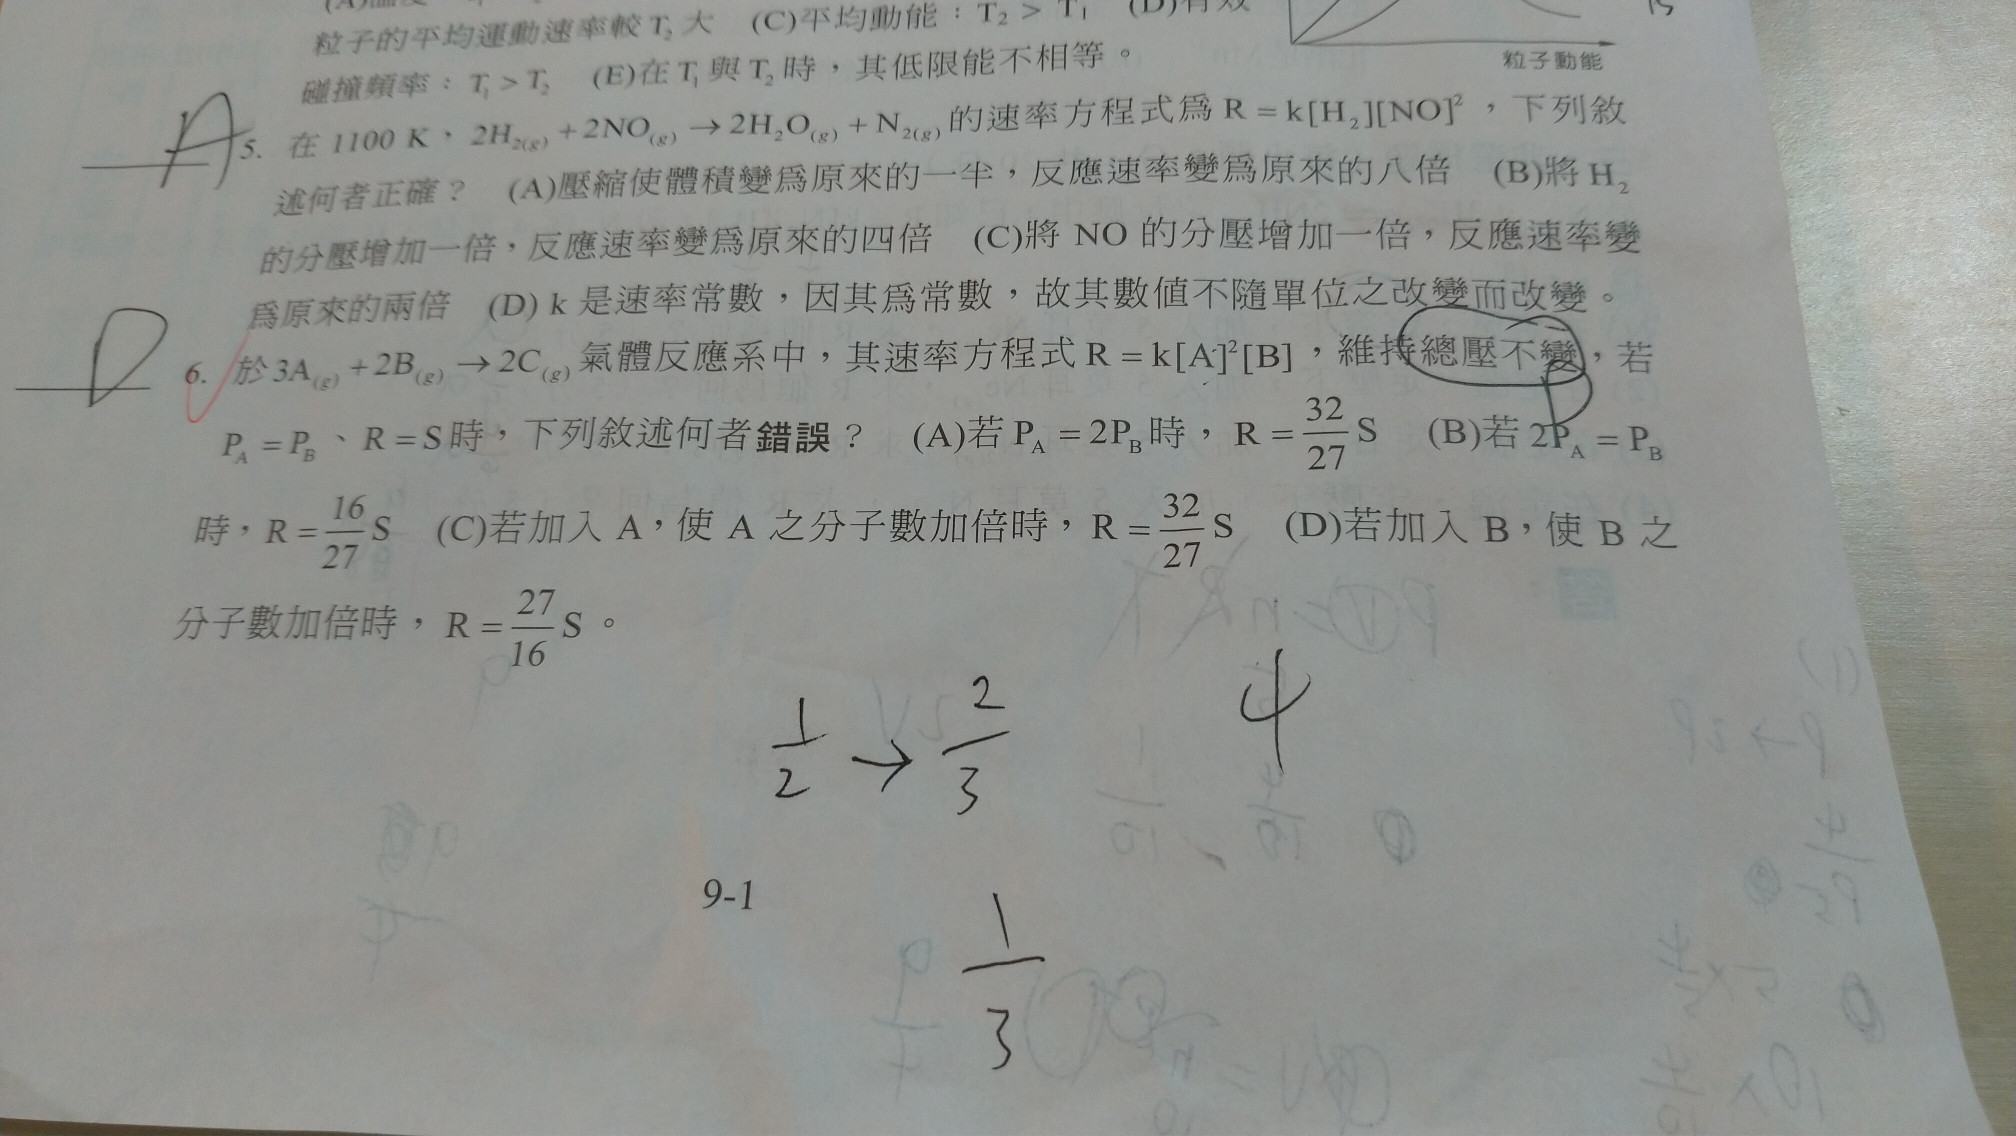 粒子的平均運動速率較 T₂ 大 (C)平均動能：T₂ > T₁ (D)有效
碰撞頻率：T₁ > T₂ (E)在 T₁ 與 T₂ 時，其低限能不相等。
粒子動能
A
5. 在 1100 K，2H₂(g) + 2NO(g) → 2H₂O(g) + N₂(g) 的速率方程式為 R = k[H₂][NO]²，下列敘
述何者正確？ (A)壓縮使體積變為原來的一半，反應速率變為原來的八倍 (B)將 H₂
的分壓增加一倍，反應速率變為原來的四倍 (C)將 NO 的分壓增加一倍，反應速率變
為原來的兩倍 (D) k 是速率常數，因其為常數，故其數值不隨單位之改變而改變。
D
6. 於 3A(g) + 2B(g) → 2C(g) 氣體反應系中，其速率方程式 R = k[A]²[B]，維持總壓不變，若
P
P_A = P_B、R = S 時，下列敘述何者錯誤？ (A)若 P_A = 2P_B 時，R = 32/27 S (B)若 2P_A = P_B
時，R = 16/27 S (C)若加入 A，使 A 之分子數加倍時，R = 32/27 S (D)若加入 B，使 B 之
分子數加倍時，R = 27/16 S。
1/2 → 2/3 4
9-1
1/3